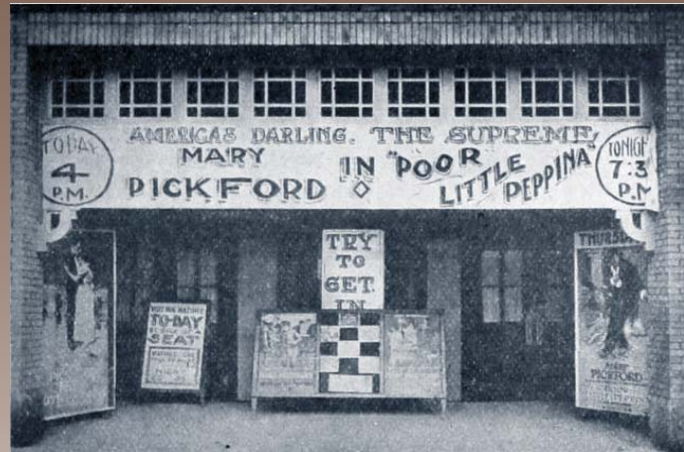 TODAY
4
P.M.
AMERICAS DARLING. THE SUPREME,
MARY
PICKFORD
IN
"POOR
LITTLE
PEPPINA"
TONIGH
7:3
P.M
TRY
TO
GET
IN
TO-DAY
SEAT
THURSD
PICKFORD